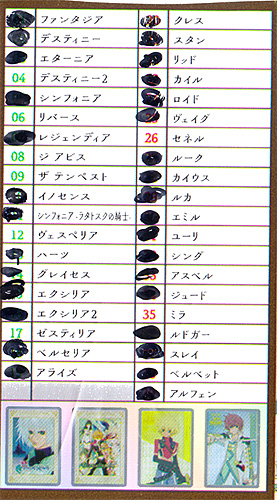 ファンタジア クレス
デスティニー スタン
エターニア リッド
04 デスティニー2 カイル
シンフォニア ロイド
06 リバース ヴェイグ
レジェンディア 26 セネル
08 ジ アビス ルーク
09 ザ テンペスト カイウス
イノセンス ルカ
シンフォニア -ラタトスクの騎士- エミル
12 ヴェスペリア ユーリ
ハーツ シング
グレイセス アスベル
エクシリア ジュード
エクシリア2 35 ミラ
17 ゼスティリア ルドガー
ベルセリア スレイ
アライズ ベルベット
アルフェン